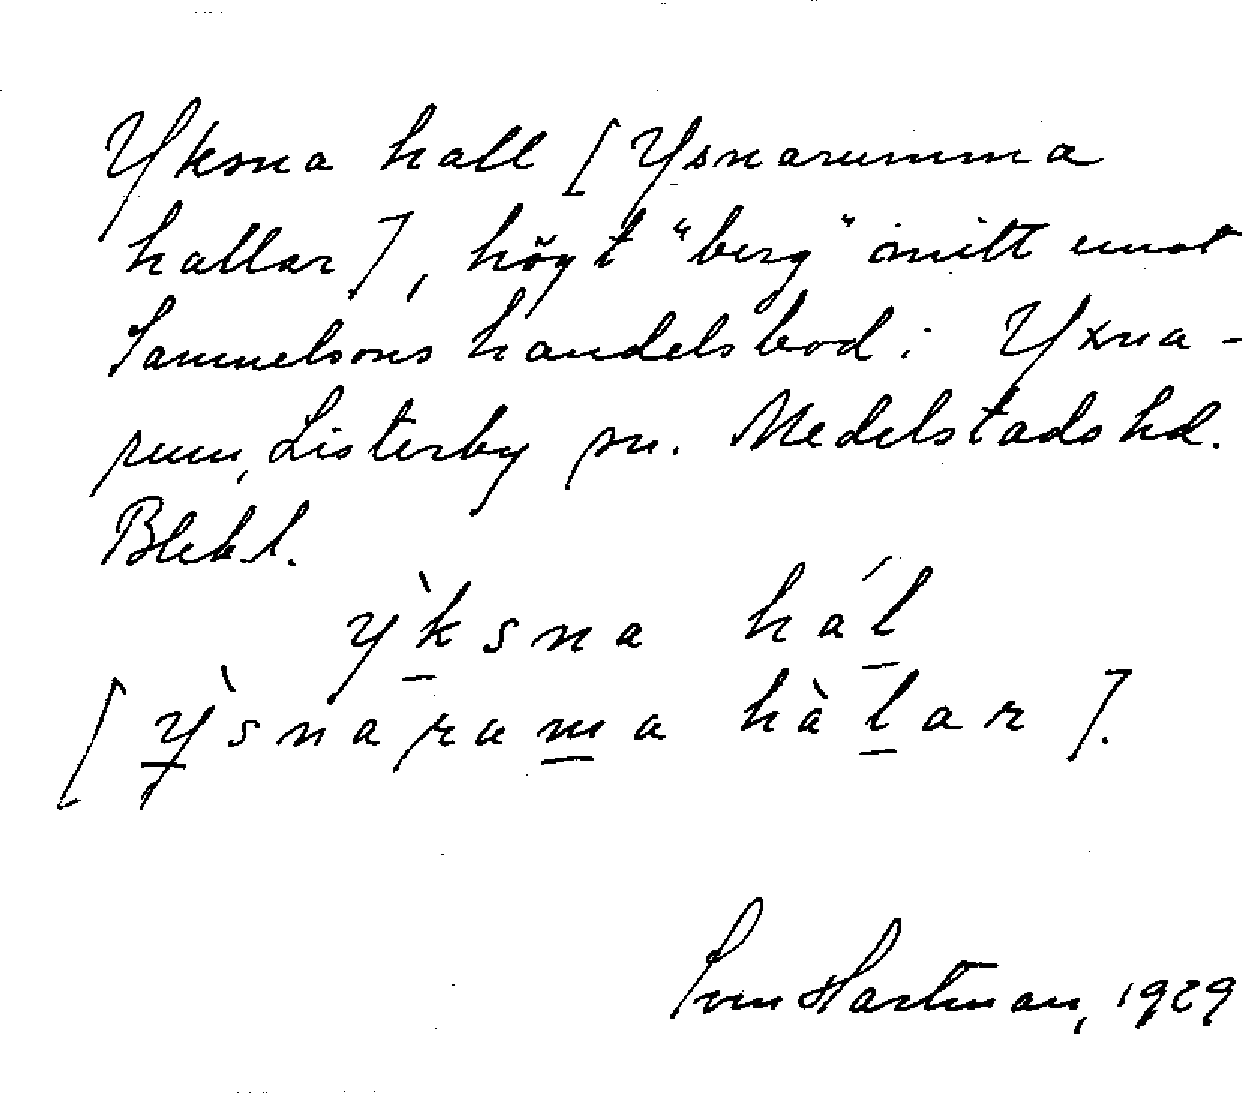 Yksna hall [Ysnarumma
hallar], högt "berg" mitt emot
Samuelsons handelsbod i Yxna-
rum, Listerby sn. Medelstads hd.
Blek. l.
ỳksna hál
[ỳsnaruma hàlar].
Sven Hartman, 1929